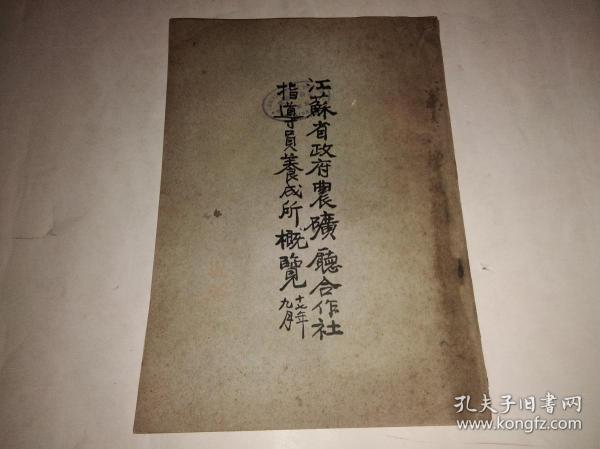 江蘇省政府農礦廳合作社
指導員養成所概覽
十七年
九月
孔夫子旧书网
www.kongfz.com